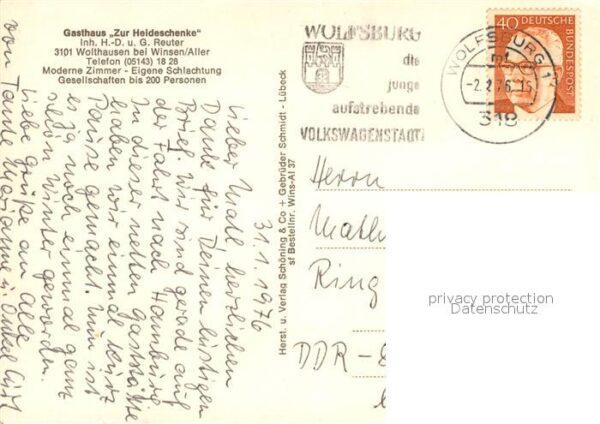 Gasthaus „Zur Heideschenke"
Inh. H.-D. u. G. Reuter
3101 Wolthausen bei Winsen/Aller
Telefon (05143) 18 28
Moderne Zimmer - Eigene Schlachtung
Gesellschaften bis 200 Personen
31.1.1976
Lieber Math herzlichen
Dank für Deinen lustigen
Brief. Wir sind gerade auf
der Fahrt nach Hamburg
In dieser netten Gaststätte
haben wir eine kurz
Pause gemacht. Nun ist
es noch einmal ganz
schön Winter geworden.
Liebe Grüße an Alle
von Tante Marianne u. Onkel
Herst. u. Verlag Schöning & Co + Gebrüder Schmidt - Lübeck
sf Bestellnr. Wins-Al 37
WOLFSBURG
die
junge
aufstrebende
VOLKSWAGENSTADT
WOLFSBURG 1
-2.2.76-15
318
40 DEUTSCHE
BUNDESPOST
Herrn
Math
Ring
DDR-
privacy protection
Datenschutz